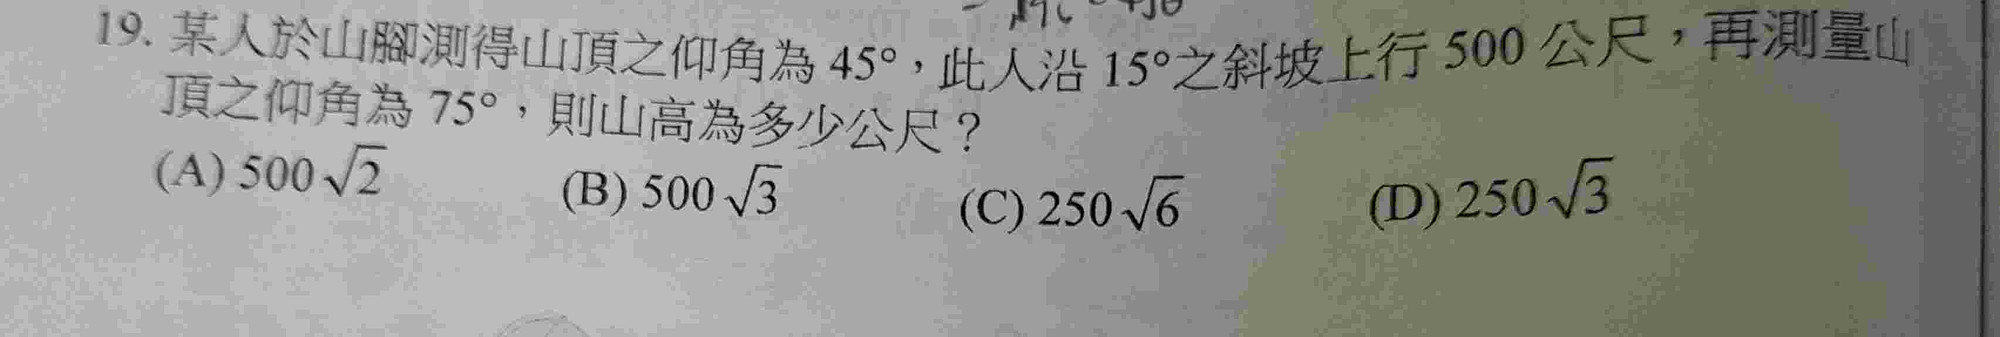 19. 某人於山腳測得山頂之仰角為 45°，此人沿 15°之斜坡上行 500 公尺，再測量山
頂之仰角為 75°，則山高為多少公尺？
(A) 500√2 (B) 500√3 (C) 250√6 (D) 250√3